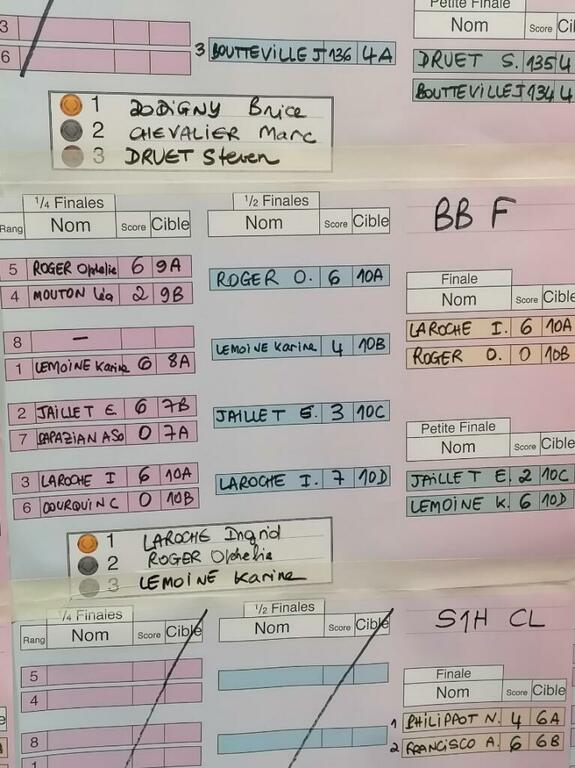 Petite Finale
Nom Score Cibl
3
6
3 BOUTTEVILLE J 136 4A
DRUET S. 135 4
BOUTTEVILLE J 134 4
1 Brice
2 CHEVALIER Marc
3 DRUET Steven
1/4 Finales
Rang Nom Score Cible
1/2 Finales
Nom Score Cible
BB F
5 ROGER Ophelie 6 9A
4 MOUTON Léa 2 9B
8 –
1 LEMOINE Karine 6 8A
2 JAILLET E 6 7B
7 PAPAZIAN ASo 0 7A
3 LAROCHE I 6 10A
6 DOURQUIN C 0 10B
ROGER O. 6 10A
LEMOINE Karine 4 10B
JAILLET E. 3 10C
LAROCHE I. 7 10D
Finale
Nom Score Cible
LAROCHE I. 6 10A
ROGER O. 0 10B
Petite Finale
Nom Score Cible
JAILLET E. 2 10C
LEMOINE K. 6 10D
1 LAROCHE Ingrid
2 ROGER Ophelie
3 LEMOINE Karine
1/4 Finales
Rang Nom Score Cible
1/2 Finales
Nom Score Cible
S1H CL
5
4
8
1
Finale
Nom Score Cible
1 PHILIPPOT N. 4 6A
2 FRANCISCO A. 6 6B